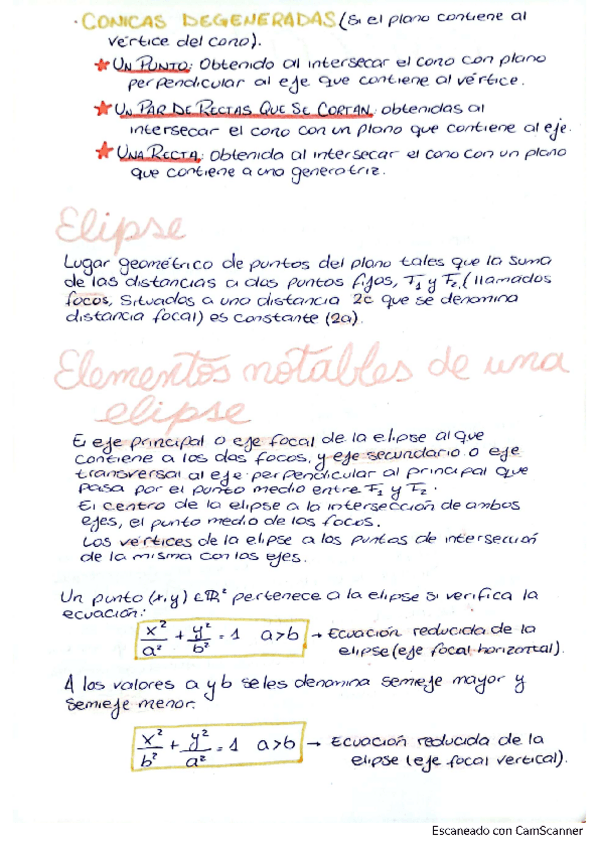 · CONICAS DEGENERADAS (Si el plano contiene al
vértice del cono).
★ UN PUNTO: Obtenido al intersecar el cono con plano
perpendicular al eje que contiene al vértice.
★ UN PAR DE RECTAS QUE SE CORTAN: obtenidas al
intersecar el cono con un plano que contiene al eje.
★ UNA RECTA: Obtenida al intersecar el cono con un plano
que contiene a una generatriz.
Elipse
Lugar geométrico de puntos del plano tales que la suma
de las distancias a dos puntos fijos, F₁ y F₂, (llamados
focos, situados a una distancia 2c que se denomina
distancia focal) es constante (2a).
Elementos notables de una
elipse
E eje principal o eje focal de la elipse al que
contiene a los dos focos, y eje secundario o eje
transversal al eje perpendicular al principal que
pasa por el punto medio entre F₁ y F₂.
El centro de la elipse a la intersección de ambos
ejes, el punto medio de los focos.
Los vértices de la elipse a los puntos de intersección
de la misma con los ejes.
Un punto (x,y) ∈ ℝ² pertenece a la elipse si verifica la
ecuación:
x²/a² + y²/b² = 1 a>b → Ecuación reducida de la
elipse (eje focal horizontal).
A los valores a y b se les denomina semieje mayor y
semieje menor.
x²/b² + y²/a² = 1 a>b → Ecuación reducida de la
elipse (eje focal vertical).
Escaneado con CamScanner